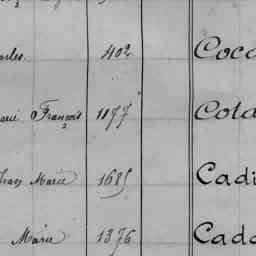 arles 402 Coco
arie François 1177 Cota
Jean Marie 1685 Cadi
Marie 1376 Cado